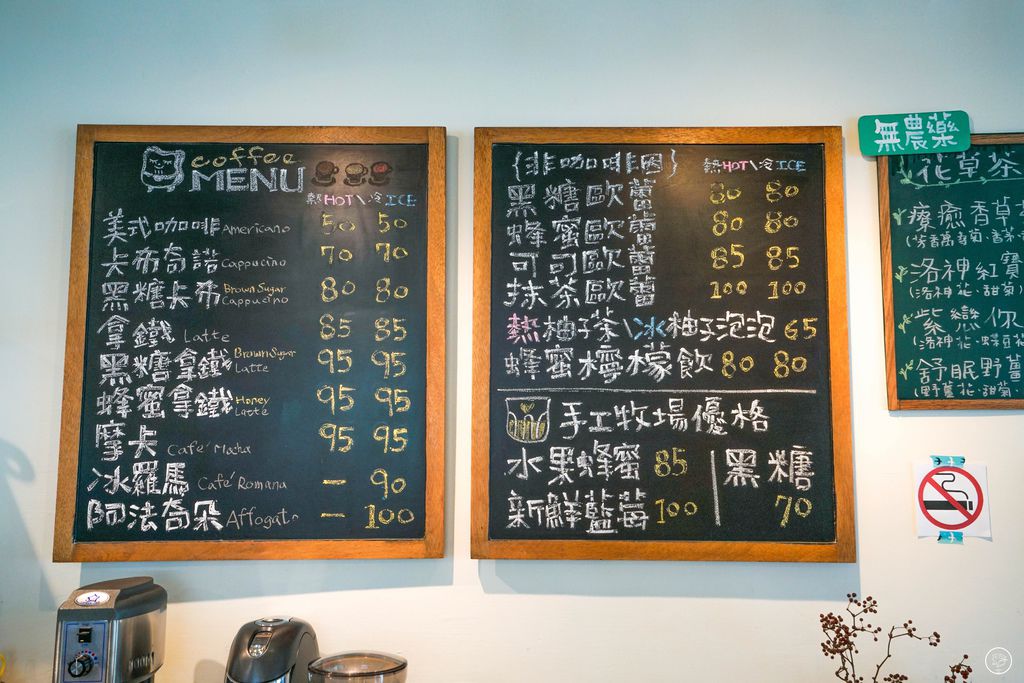 coffee
MENU
熱HOT\冷ICE
美式咖啡 Americano 50 50
卡布奇諾 Cappucino 70 70
黑糖卡布 Brown Sugar Cappucino 80 80
拿鐵 Latte 85 85
黑糖拿鐵 Brown Sugar Latte 95 95
蜂蜜拿鐵 Honey Latte 95 95
摩卡 Café Mocha 95 95
冰羅馬 Café Romana — 90
阿法奇朵 Affogato — 100
{非咖啡因} 熱HOT\冷ICE
黑糖歐蕾 80 80
蜂蜜歐蕾 80 80
可可歐蕾 85 85
抹茶歐蕾 100 100
熱柚子茶\冰柚子泡泡 65
蜂蜜檸檬飲 80 80
手工牧場優格
水果蜂蜜 85
新鮮藍莓 100
黑糖
70
無農藥
花草茶
療癒香草
洛神紅寶
(洛神花·甜菊
紫戀你
舒眠野薑
(野薑花·甜菊